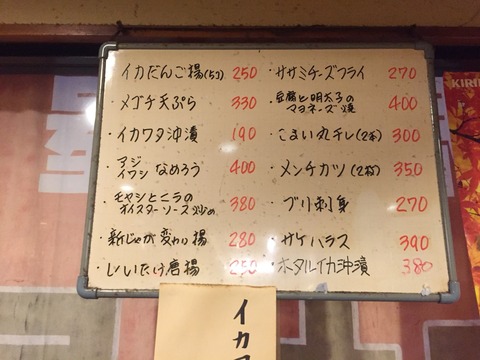 ・イカだんご揚(5コ) 250
・メゴチ天ぷら 330
・イカワタ沖漬 190
・アジ
イワシ なめろう 400
・モヤシとニラの
オイスターソース炒め 380
・新じゃが変わり揚 280
・しいたけ唐揚 250
・ササミチーズフライ 270
・豆腐と明太子の
マヨネーズ焼 400
・こまい丸干し(2本) 300
・メンチカツ(2枚) 350
・ブリ刺身 270
・サケハラス 390
・ホタルイカ沖漬 380
KIRIN
イカ